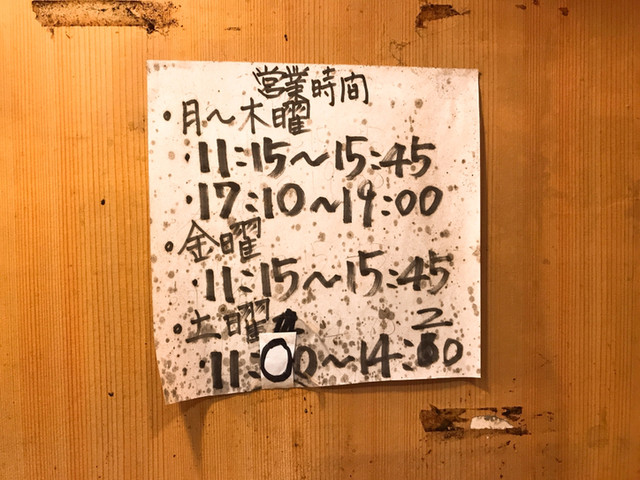 営業時間
・月〜木曜
・11:15〜15:45
・17:10〜19:00
・金曜
・11:15〜15:45
・土曜
・11:00〜14:20